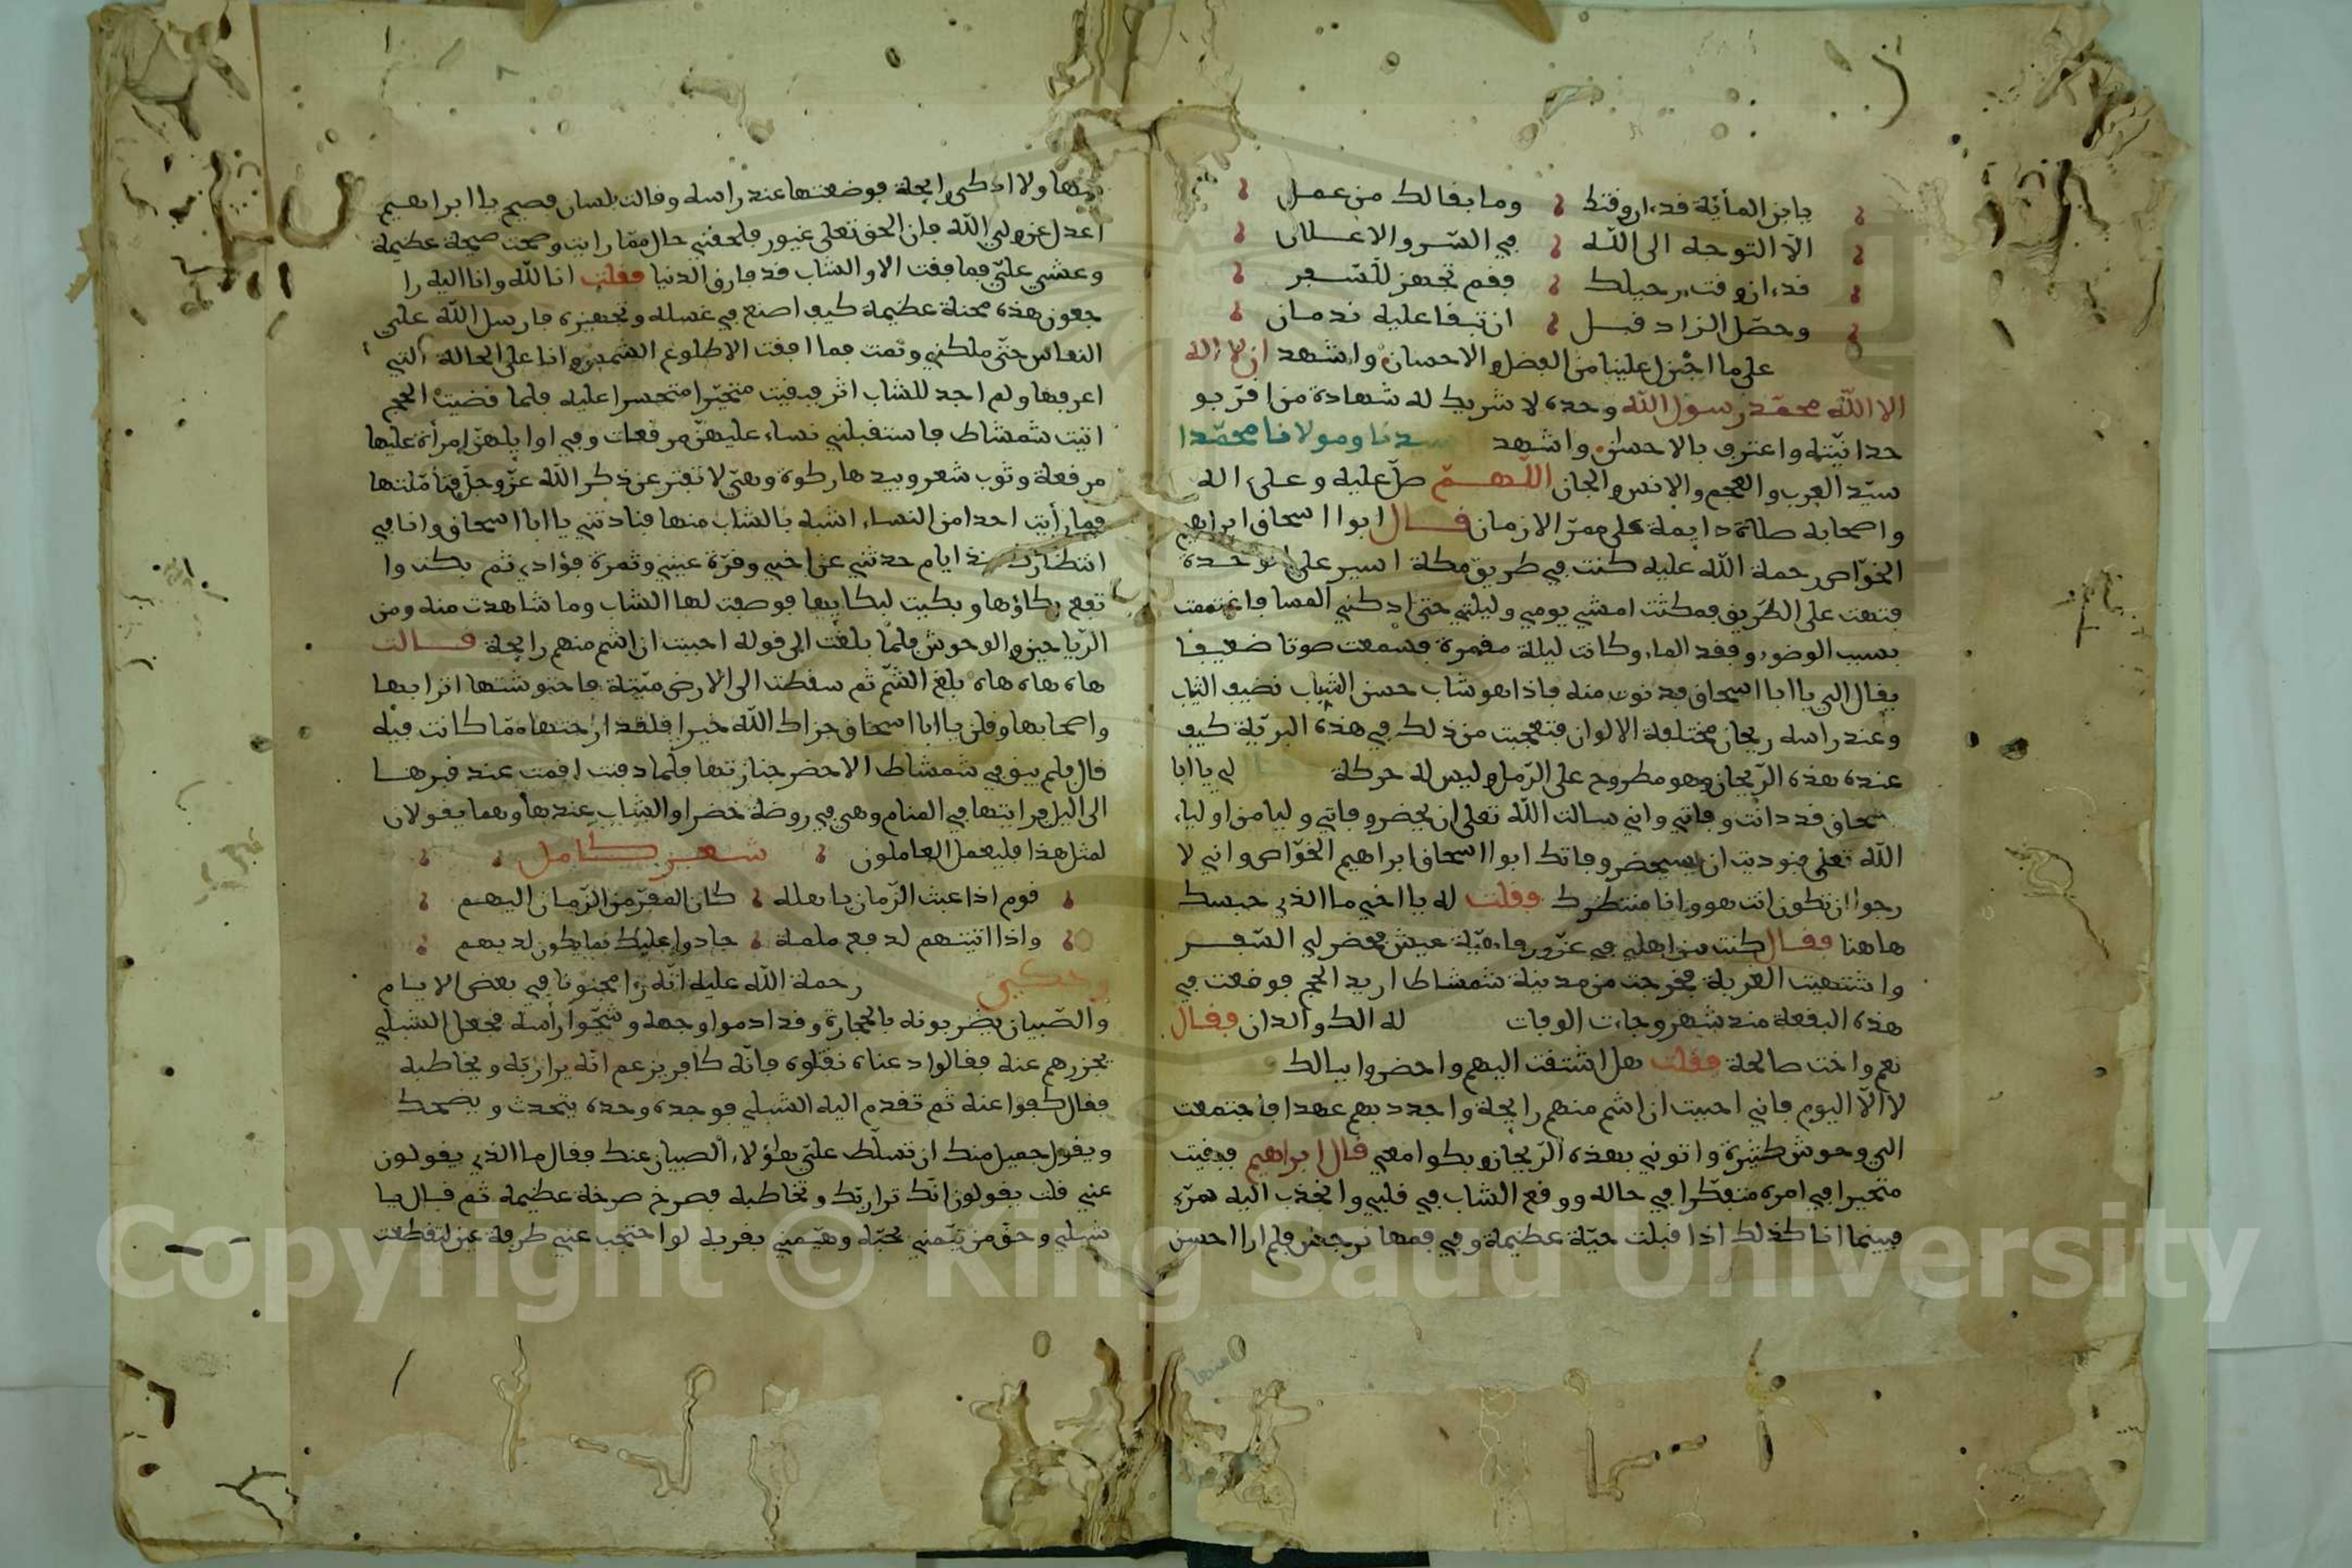 يابن المأية قد دار وقتك وما بقا لك من عمل
الا التوجه الى الله في السر والاعلان
قد دان وقت رحيلك فقم تجهز للسفر
وحصل الزاد قبل ان تبقا عليه ندمان
على ما اجزل علينا من الفضل والاحسان واشهد ان لا اله
الا الله محمد رسول الله وحده لا شريك له شهادة من اقر بو
حدانيته واعترف بالاحسان واشهد سيدنا ومولانا محمدا
سيد العرب والعجم والانس والجان اللهم صل عليه وعلى اله
واصحابه صلاة دايمة على ممر الازمان قال ابوا اسحاق ابراهيم
الخواص رحمة الله عليه كنت في طريق مكة اسير على الوحدة
فتهت على الطريق فمكثت امشي يومي وليلتي حتى ادركني المسا فاغتممت
بسبب الوضوء وفقد الماء وكانت ليلة مقمرة فسمعت صوتا ضعيفا
يقال الي يا ابا اسحاق فدنوت منه فاذا هو شاب حسن الشباب نضيف الثياب
وعند راسه ريحان مختلفة الالوان فتعجبت من ذلك في هذه البرية كيف
عنده هذه الريحان وهو مطروح على الرمل وليس له حركة لي يا ابا
سحاق قد دانت وفاتي واني سالت الله تعلى ان يحضر وفاتي وليا من اولياء
الله تعلى فنوديت ان سيحضر وفاتك ابوا اسحاق ابراهيم الخواص واني لا
رجوا ان تكون انت هو وانا منتظرك فقلت له يا اخي ما الذي حبسك
هاهنا فقال كنت من اهلي في عز ورفاهية عيش فحضر لي السفر
واشتهيت الغربة فخرجت من مدينة شمشاط اريد الحج فوضعت في
هذه البقعة منذ شهر وجاءت الوفات له الك والدان فقال
نعم واخت صالحة فقلت هل اشتقت اليهم واحضروا ببالك
لا الا اليوم فاني احببت ان اشم منهم رايحة واجدد بهم عهدا فاجتمعت
الي وحوش كثيرة واتوني بهذه الريحان وبكوا معي قال ابراهيم فبقيت
متحيرا في امره متفكرا في حاله ووقع الشاب في قلبي وانجذب اليه سري
فبينما انا كذلك اذا قبلت حية عظيمة وفي فمها نرجس فلم ارا احسن
منها ولا اذكى رايحة فوضعتها عند راسه وقالت بلسان فصيح يا ابراهيم
اعدل عن ولي الله فان الحق تعلى غيور فلحقني حال مما رايت وصحت صيحة عظيمة
وغشي علي فما فقت الا والشاب قد فارق الدنيا فقلت انا لله وانا اليه را
جعون هذه محنة عظيمة كيف اصنع في غسله وتجهيزه فارسل الله علي
النعاس حتى ملكني ونمت فما افقت الا طلوع الشمس وانا على الحالة التي
اعرفها ولم اجد للشاب اثر فبقيت متحيرا متحسرا عليه فلما قضيت الحج
اتيت شمشاط فاستقبلني نساء عليهن مرقعات وفي اوايلهن امرأة عليها
مرقعة وثوب شعر وبيدها ركوة وهي لا تفتر عن ذكر الله عز وجل فتأملتها
فما رأيت احدا من النساء اشبه بالشاب منها فنادتني يا ابا اسحاق وانا في
انتظارك منذ ايام حدثني عن اخي وقرة عيني وثمرة فؤادي ثم بكت وا
رتفع بكاؤها وبكيت لبكايها فوصفت لها الشاب وما شاهدت منه ومن
الرياحين والوحوش فلما بلغت الى قوله احببت ان اشم منهم رايحة قالت
هاه هاه هاه بلغ الشم ثم سقطت الى الارض ميتة فاحتوشتها اترابها
واصحابها وقلن يا ابا اسحاق جزاك الله خيرا فلقد ارحتها مما كانت فيه
قال فلم يبق في شمشاط الا حضر جنازتها فلما دفنت اقمت عند قبرها
الى اليل فرايتها في المنام وهي في روضة خضرا والشاب عندها وهما يقولان
لمثل هذا فليعمل العاملون شعر كامل
قوم اذا عبث الزمان باهله كان المفر من الزمان اليهم
واذا اتيتهم لدفع ملمة جادوا عليك بما يكون لديهم
وحكي رحمة الله عليه انه را مجنونا في بعض الايام
والصبيان يضربونه بالحجارة وقد ادموا وجهه وشجوا رأسه فجعل الشبلي
يجزرهم عنه فقالوا دعناه نقتلوه فانه كافر يزعم انه يرا ربه ويخاطبه
فقال كفوا عنه ثم تقدم اليه الشبلي فوجده وحده يتحدث ويضحك
ويقول جميل منك ان تسلط علي هؤلاء الصبيان عنك فقال ما الذي يقولون
عني قلت يقولون انك ترا ربك وتخاطبه فصرخ صرخة عظيمة ثم قال يا
شبلي وحق من تيمني بحبه وهيمني بقربه لو احتجب عني طرفة عين لتقطعت
Copyright © King Saud University